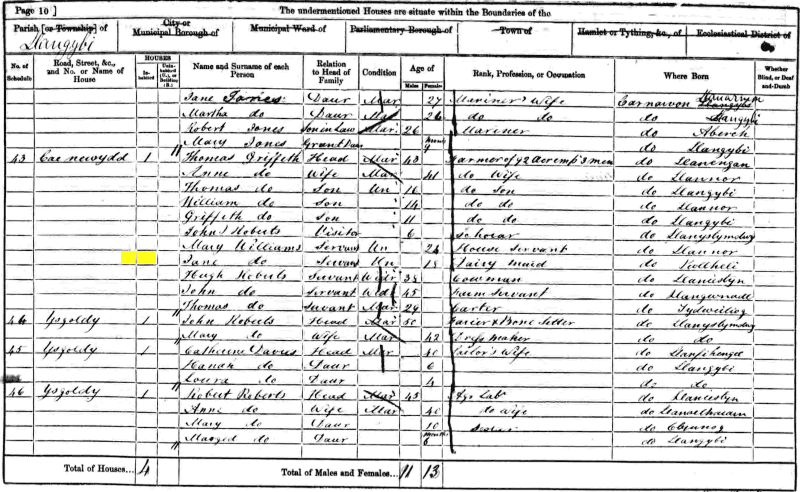 Page 10 ] The undermentioned Houses are situate within the Boundaries of the
Parish [or Township] of Llangybi City or Municipal Borough of Municipal Ward of Parliamentary Borough of Town of Hamlet or Tything, &c., of Ecclesiastical District of
No. of Schedule Road, Street, &c., and No. or Name of House HOUSES Inhabited Uninhabited (U.), or Building (B.) Name and Surname of each Person Relation to Head of Family Condition Age of Males Females Rank, Profession, or Occupation Where Born Whether Blind, or Deaf-and-Dumb
Jane Jones Daur Mar 27 Mariner's Wife Carnarvon
Martha do Daur Mar 26 do do do Llangybi
Robert Jones Son in Law Mar 26 Mariner do Aberch
Mary Jones Grand Daur do Llangybi
43 Cae newydd 1 Thomas Griffeth Head Mar 43 Farmer of 92 Acr emp 3 men do Llanengan
Anne do Wife Mar 41 do Wife do Llannor
Thomas do Son Un 16 do Son do Llangybi
William do Son 14 do do do Llannor
Griffeth do Son 11 do do do Llangybi
John Roberts Visitor 6 Scholar do Llanystymdwy
Mary Williams Servant Un 24 House Servant do Llannor
Jane do Servant Un 18 Dairy maid do
Hugh Roberts Servant Widr 38 Cowman do
John do Servant Widr 45 Farm Servant do
Thomas do Servant Mar 29 Carter do
44 Ysgoldy 1 John Roberts Head Mar 50 Farier & Bone Setter do Llanystymdwy
Mary do Wife Mar 42 Dress maker do do
45 Ysgoldy 1 Catherine Davies Head Mar 40 Sailor's Wife do
Hanah do Daur 6 do Llangybi
Loura do Daur 4 do do
46 Ysgoldy 1 Robert Roberts Head Mar 45 Ag. Lab do
Anne do Wife Mar 40 do wife do
Mary do Daur 10 do Clynnog
Marged do Daur 6 do Llangybi
Total of Houses... 4 Total of Males and Females... 11 13